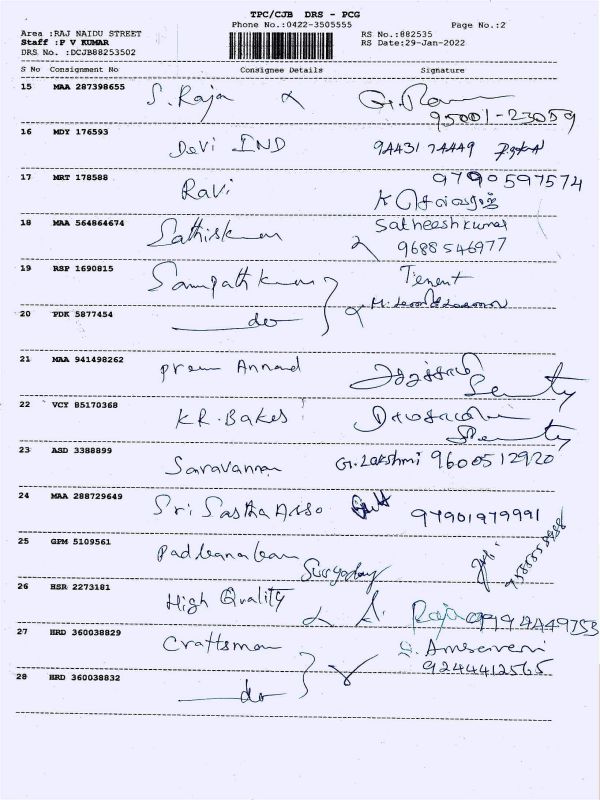 TPC/CJB DRS - PCG
Phone No.:0422-3505555 Page No.:2
Area :RAJ NAIDU STREET RS No.:882535
Staff :P V KUMAR RS Date:29-Jan-2022
DRS No. :DCJB88253502
S No Consignment No Consignee Details Signature
15 MAA 287398655 S. Raja
95001-23059
16 MDY 176593 Devi IND 94431 74449
17 MRT 178588 Ravi 9790597574
18 MAA 564864674 Sathiskumar Satheeshkumar
9688546977
19 RSP 1690815 Sampathkumar Tenent
20 PDK 5877454 do
21 MAA 941498262 prem Annand
22 VCY 85170368 KR. Bakes
23 ASD 3388899 Saravanan G. Lakshmi 9600512920
24 MAA 288729649 Sri Sastha Asso 97901979991
25 GPM 5109561 Padbanaban Suryoday
26 HSR 2273181 High Quality A. Raja
27 HRD 360038829 Craftsman
9244412565
28 HRD 360038832 do